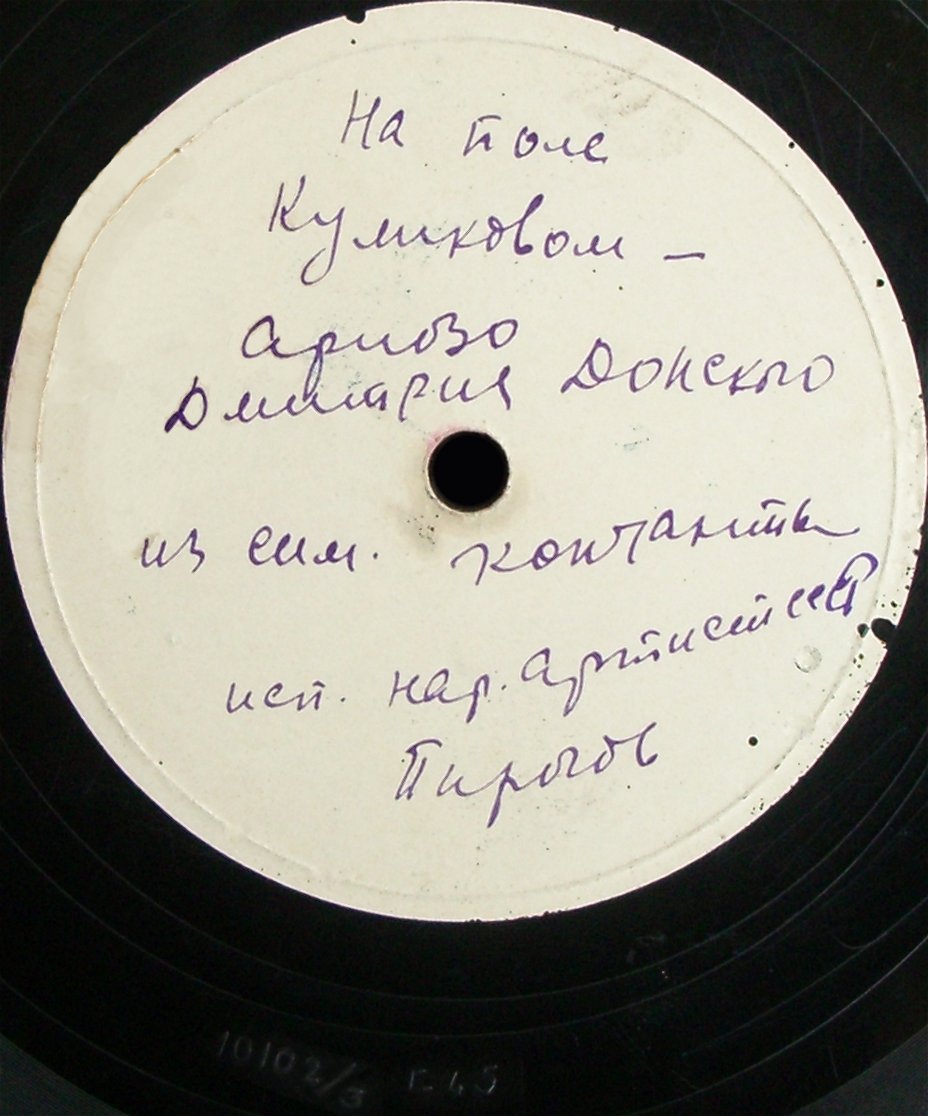 На поле
Куликовом —
Ариозо
Дмитрия Донского
из сим. контанты
исп. нар. артист СССР
Пирогов
10102/3 Г. 45